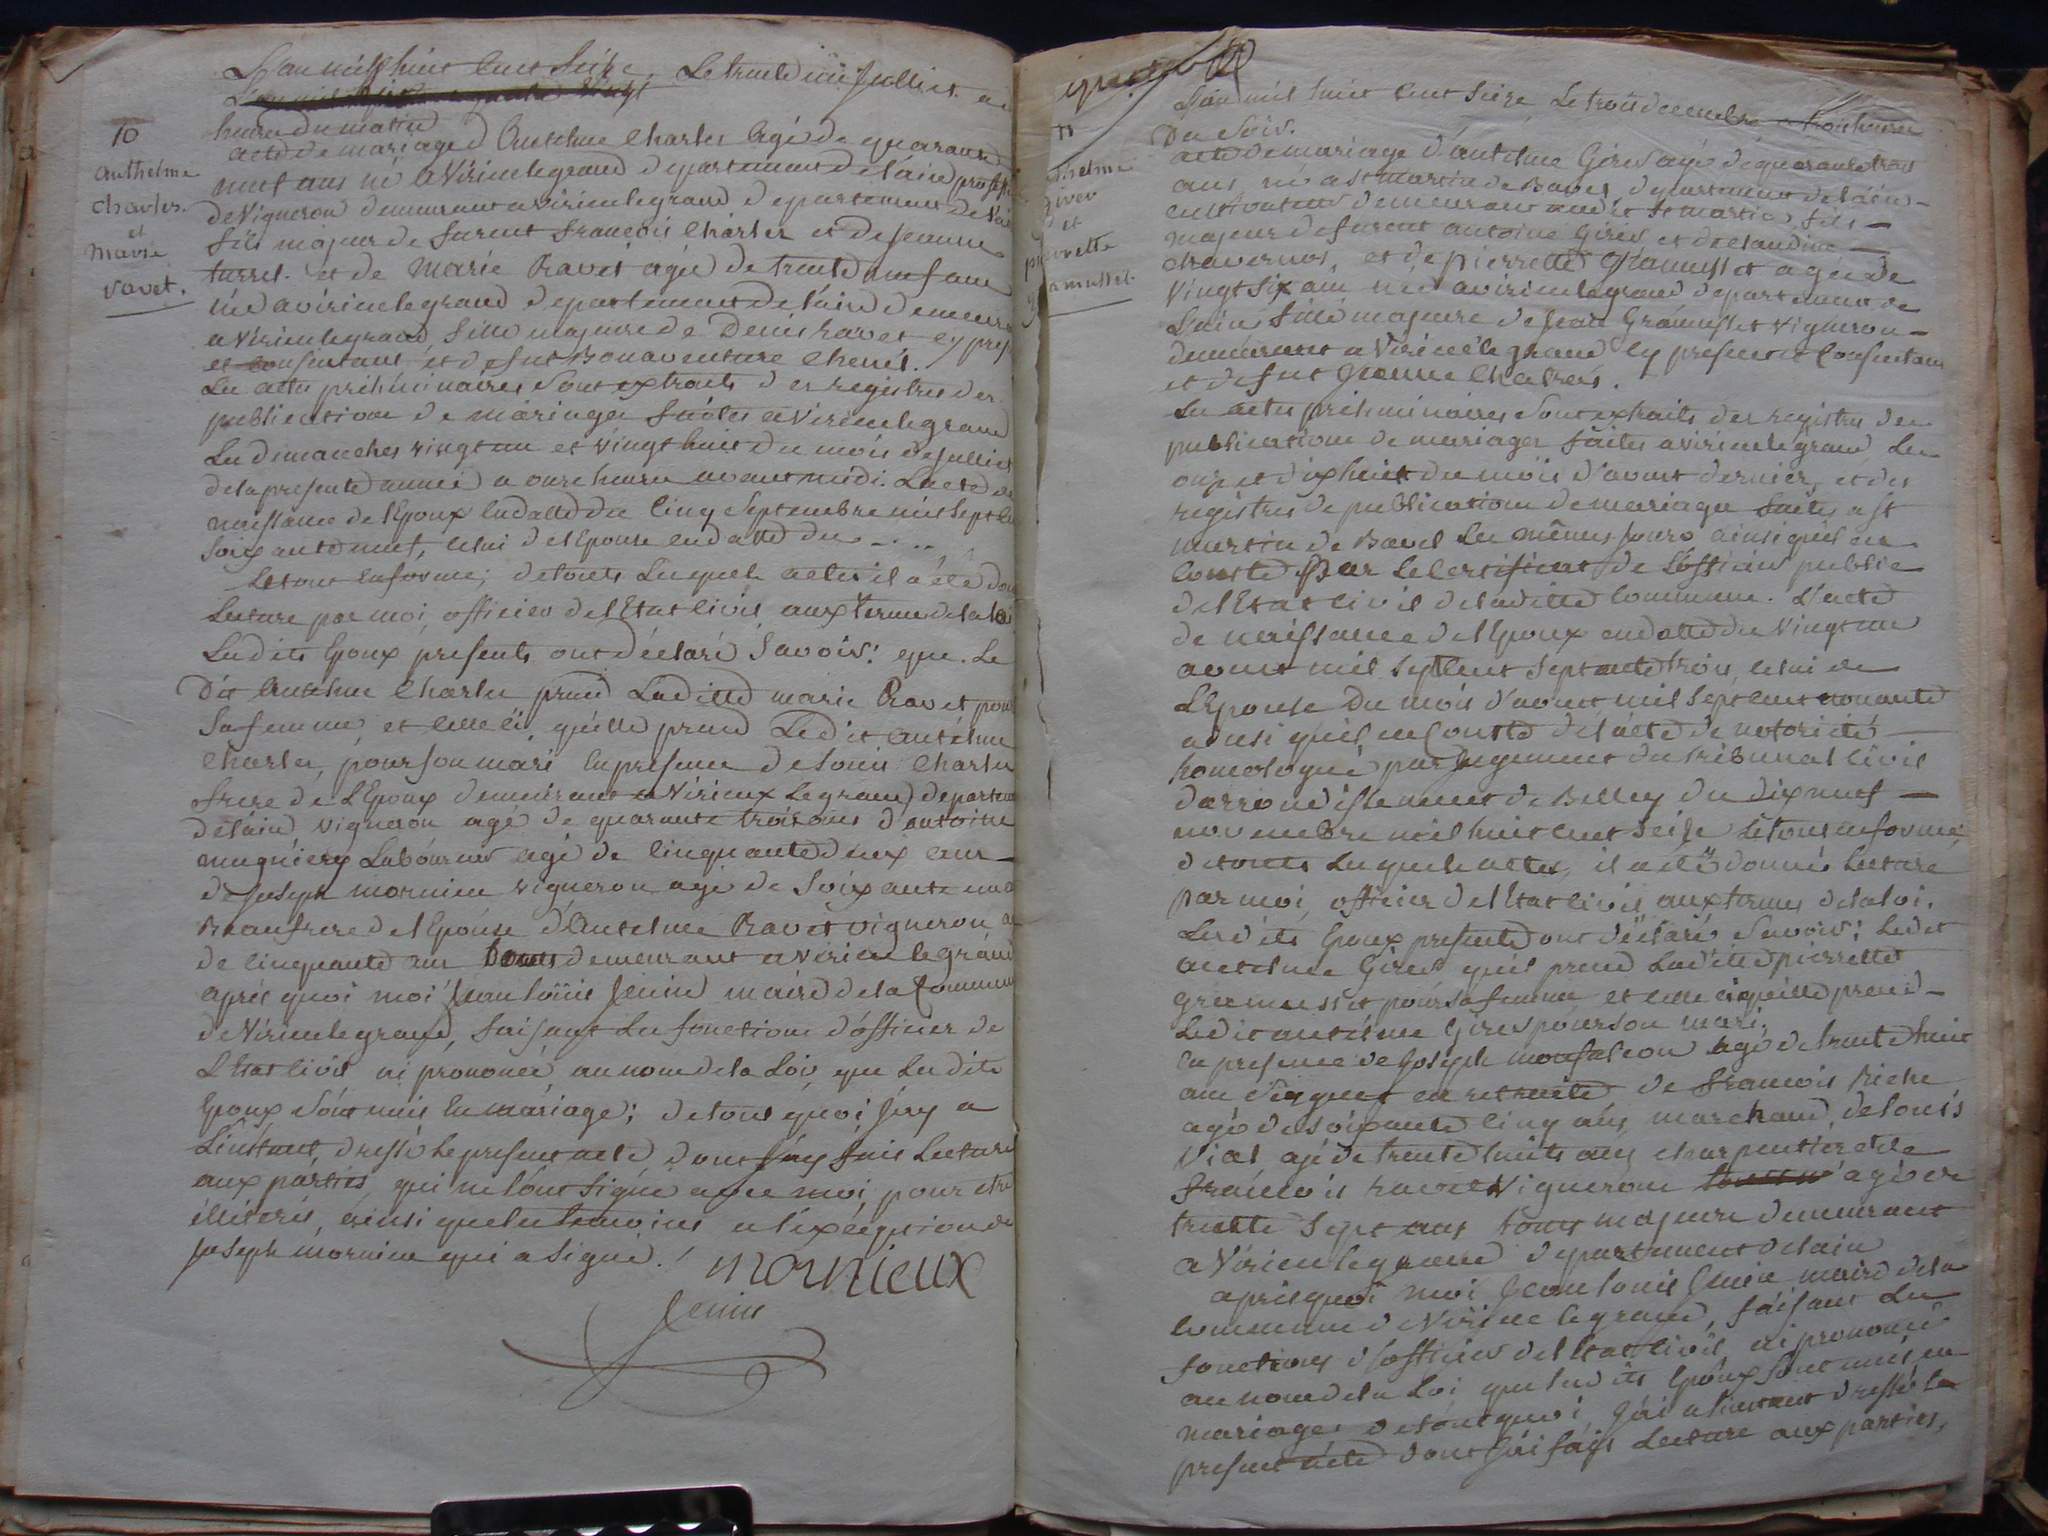 L'an mil huit cent seize, Le trente un Julliet a
heure du matin
10
anthelme
charles.
et
marie
ravet.
acte de mariage d'Antelme Charles agé de quarante
neuf ans né a Virieu le grand departement de l'ain profess
de Vigneron demeurant a virieu le grand departement de l'ai
fils majeur de furent francois Charles et de jeanne
turrel. et de Marie Ravet agée de trente neuf ans
née a virieu le grand departement de l'ain demeura
a Virieu le grand, fille majeure de Denis ravet cy pres
et consentant et de fut Bonaventure
Les actes préliminaires sont extraits des registres des
publications de mariages faites a Virieu le grand
Les dimanches vingt un et vingt huit du mois de julliet
de la presente année a onze heures avant midi. L'acte de
naissance de l'Epoux en datte du cinq Septembre mil sept ce
soixante neuf, celui de l'Epouse en datte du - . . .
Le tout en forme; de touts lesquels actes il a été don
Lecture par moi, officier de l'Etat civil aux termes de la loi
Lesdits Epoux presents ont déclaré savoir: que. Le
Dit Antelme Charles prend Laditte marie Ravet pour
sa femme, et celle ci, qu'elle prend Ledit antelme
Charles, pour son mari en presence de Louis Charles
frere de L'Epoux demeurant a Virieux Le grand departem
de l'ain, vigneron agé de quarante trois ans d'antoine
mugniery Laboureur agé de cinquante deux ans
de joseph mornieu vigneron agé de soixante un a
Beaufrere de l'Epouse d'Antelme Ravet vigneron a
de cinquante ans tous demeurant a virieu le grand
aprés quoi moi Jean louis Jenin maire de la Commune
de Virieu le grand, faisant les fonctions d'officier de
L'Etat civil ai prononcé, au nom de la Loi, que Lesdits
Epoux sont unis en mariage; de tout quoi, j'ay a
L'instant, dressé le present acte dont j'ay fait Lecture
aux parties, qui ne l'ont signé avec moi, pour etre
illiterés, ainsi que les temoins a l'exéception de
joseph mornieu qui a signé.
mornieux
Jenin
L'an mil huit cent seize Le trois decembre a trois heures
Du soir.
11
thelme
girer
et
pierrette
gramusset
acte de mariage d'antelme Girer agé de quarante trois
ans, né a St martin de Bavel, departement de l'ain -
cultivateur demeurant audit St martin, fils -
majeur de furent antoine Girer et de claudine
et de pierrette Gramusset agée de
Vingt six ans née a virieu le grand departement de
L'ain fille majeure de jean Gramusset vigneron -
demeurant a Virieu le grand cy present et consentant
et de fut jeanne
Les actes préliminaires sont extraits des registres des
publications de mariages faites a virieu le grand Les
onze et dixhuit du mois d'avant dernier, et des
registres de publications de mariages faites a St
martin de Bavel Les mêmes jours ainsi qu'il en
conste par Le certificat de L'officier public
de l'Etat civil de laditte commune. L'acte
de naissance de l'Epoux en datte du Vingt un
aoust mil sept cent septante trois, celui de
L'Epouse Du mois d'aoust mil sept cent nonante
ainsi qu'il en conste de l'acte de notorieté
homologué par jugement du tribunal civil
d'arrondissement de Belley du dix neuf -
novembre mil huit cent seize Le tout en forme,
de touts Lesquels actes, il a été donné Lecture
par moi, officier de l'Etat civil aux termes de la loi.
Lesdits Epoux presents ont déclaré savoir: Ledit
antelme Girer qu'il prend Laditte pierrette
gramusset pour sa femme et celle ci qu'elle prend -
Ledit antelme Girer pour son mari.
en presence de Joseph monfalcon agé de trente huit
ans en retraite de francois Riche
agé de soixante cinq ans marchand, de louis
Vial agé de trente huits ans charpentier et de
francois ravet Vigneron agé de
trente sept ans touts majeurs demeurant
a Virieu le grand departement de l'ain
apres quoi moi Jean louis Jenin maire de la
commune de Virieu le grand, faisant Les
fonctions d'officier de l'Etat civil, ai prononcé
au nom de la Loi que lesdits Epoux sont unis en
mariage, de tout quoi, j'ai a l'instant dressé Le
present acte dont j'ai fait Lecture aux parties,